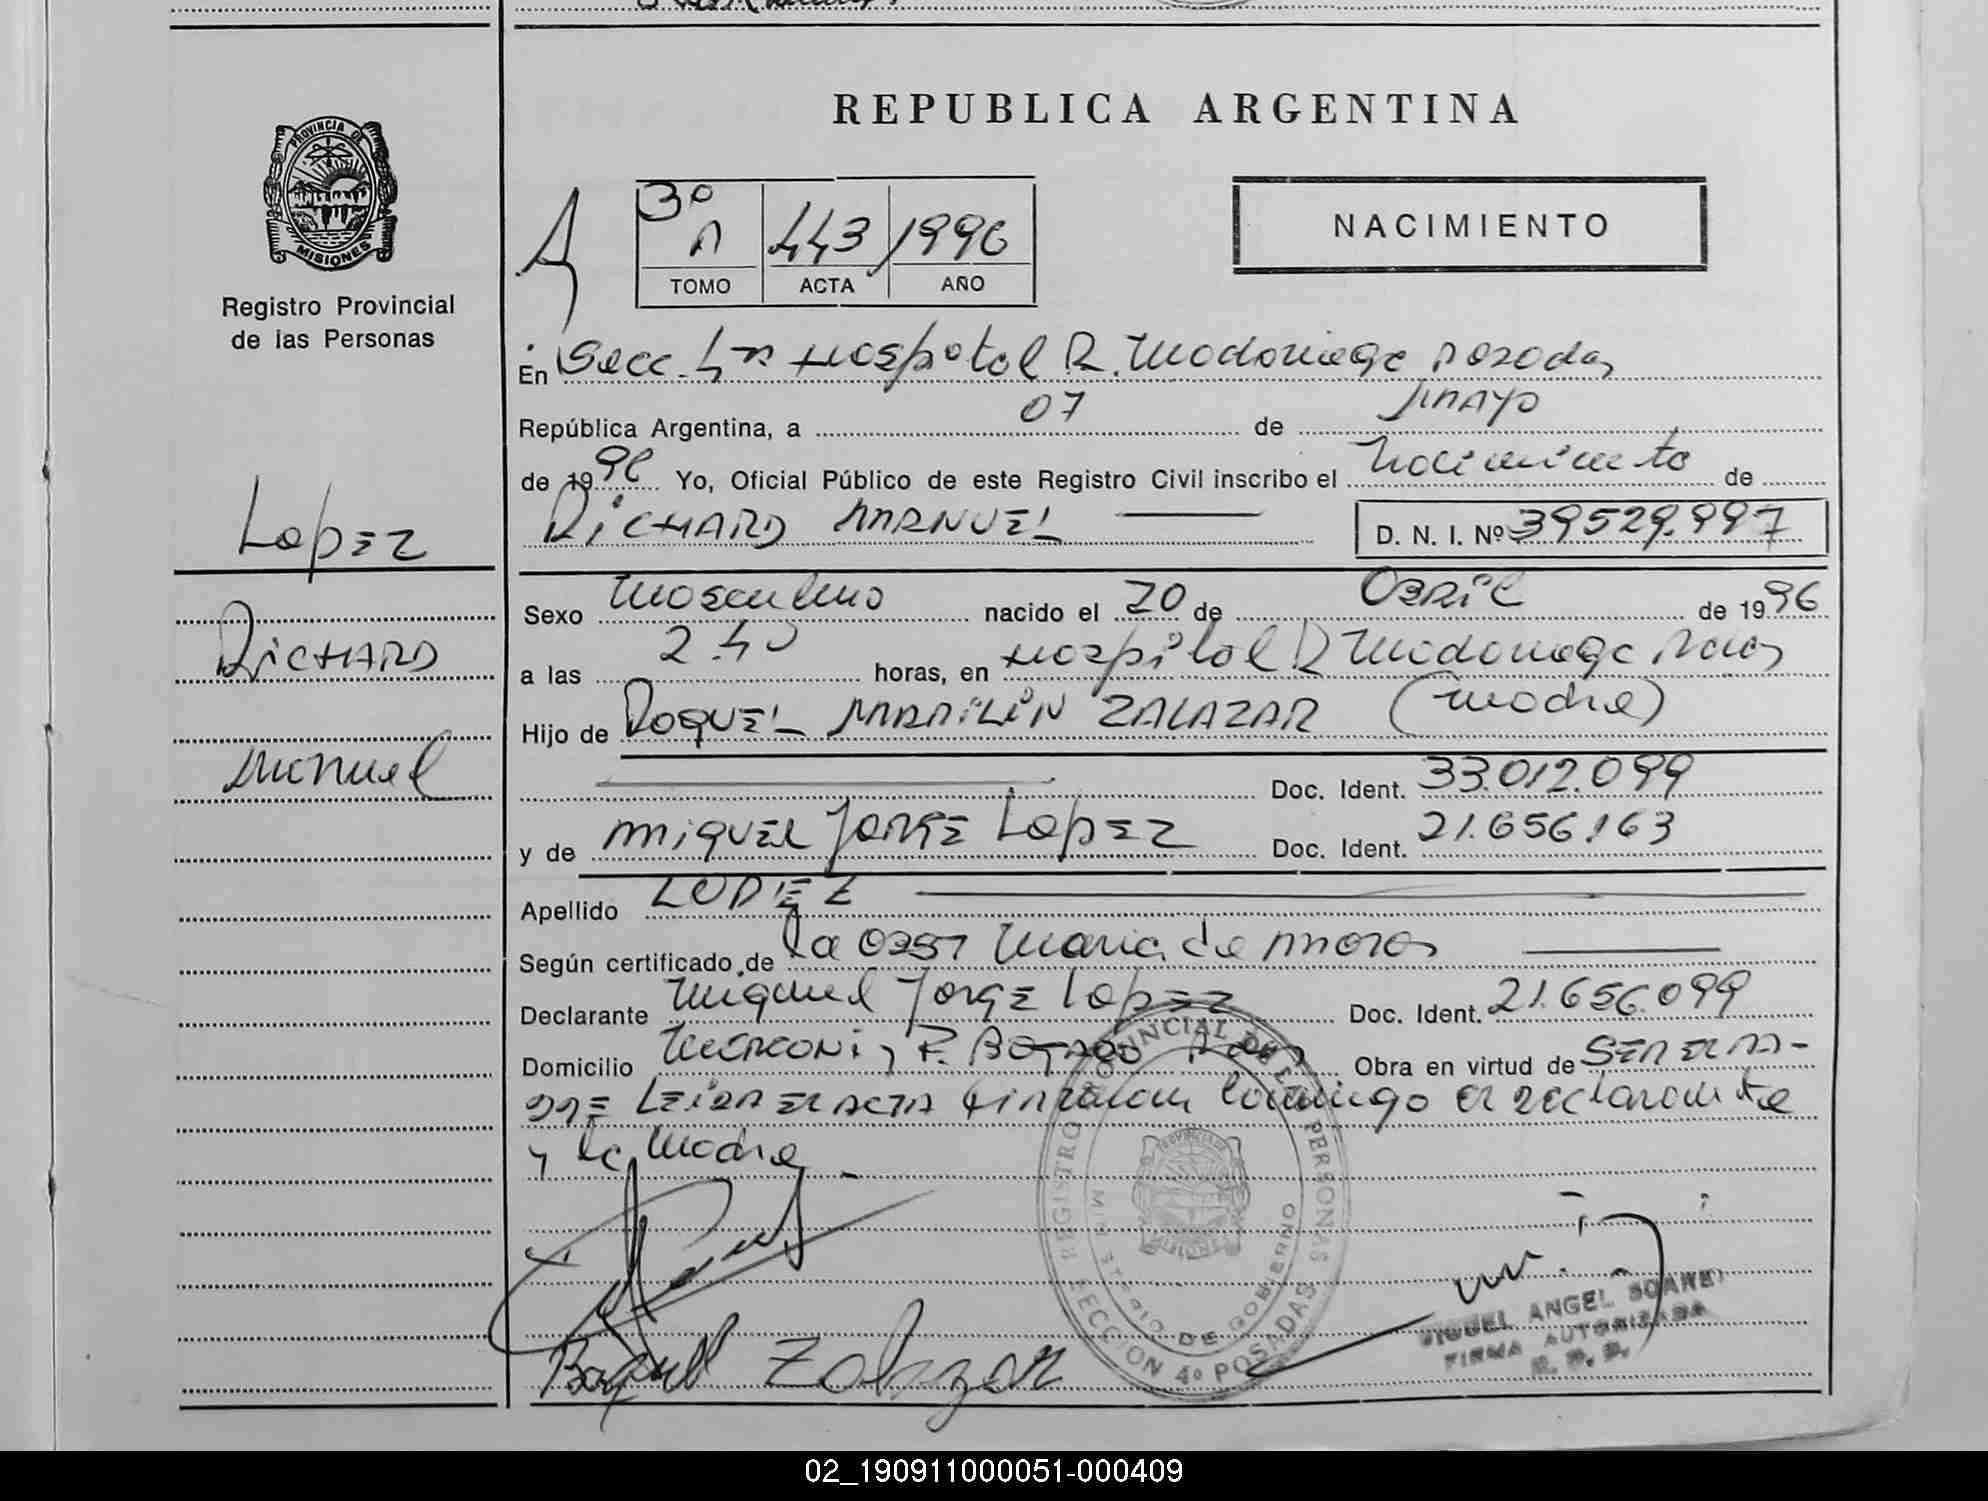 REPUBLICA ARGENTINA
PROVINCIA DE
MISIONES
Registro Provincial
de las Personas
3º
A
443
1996
TOMO ACTA AÑO
NACIMIENTO
En Secc. 4ta Hospital R. Madariaga Posadas
República Argentina, a 07 de MAYO
de 1996 Yo, Oficial Público de este Registro Civil inscribo el Nacimiento de
RICHARD MANUEL D. N. I. Nº 39529.997
Lopez
Richard
Manuel
Sexo Masculino nacido el 20 de Abril de 1996
a las 2.40 horas, en Hospital R Madariaga
Hijo de Raquel Marilin ZALAZAR (Madre)
Doc. Ident. 33.012.099
y de Miguel Jorge Lopez Doc. Ident. 21.656.163
Apellido LOPEZ
Según certificado de la Obst Maria de
Declarante Miguel Jorge Lopez Doc. Ident. 21.656.099
Domicilio Marconi y Obra en virtud de
Leida el acta firman conmigo el declarante
y la Madre.
REGISTRO PROVINCIAL DE LAS PERSONAS
MINISTERIO DE GOBIERNO
SECCION 4º POSADAS
Raquel Zalazar
MIGUEL ANGEL SOAREZ
FIRMA AUTORIZADA
R. P. P.
02_190911000051-000409